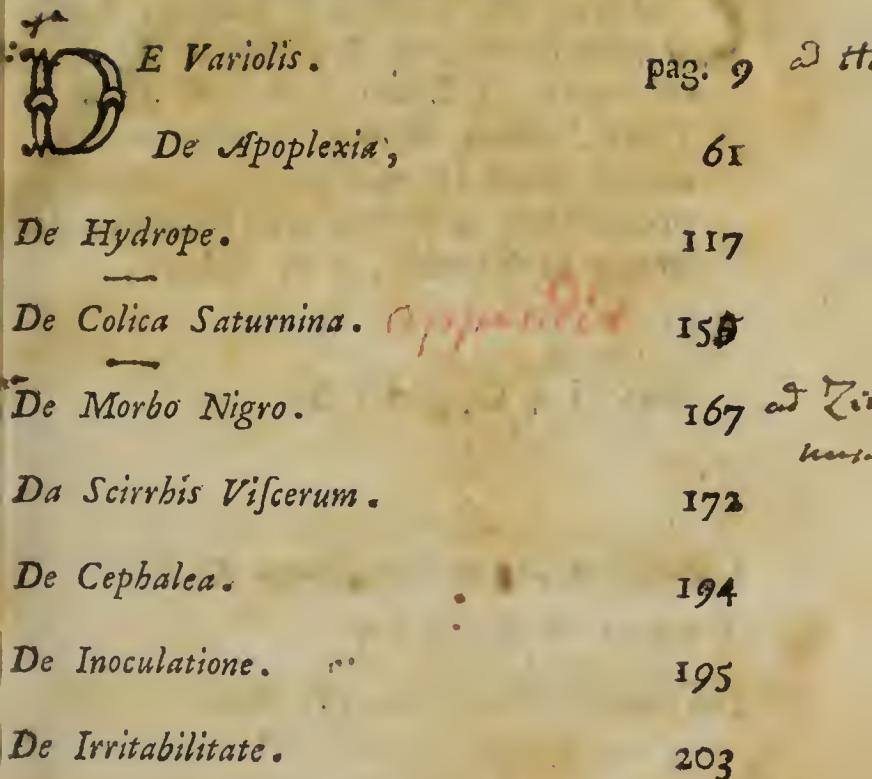 DE Variolis. pag: 9 ad
De Apoplexia, 61
De Hydrope. 117
De Colica Saturnina. 155
De Morbo Nigro. 167 ad
Da Scirrhis Viſcerum. 172
De Cephalea. 194
De Inoculatione. 195
De Irritabilitate. 203